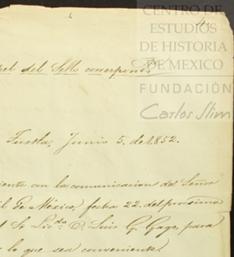 CENTRO DE
ESTUDIOS
DE HISTORIA
DE MEXICO
FUNDACIÓN
Carlos Slim
del Sello correspond.
Tuxtla, Junio 5, de 1852.
con la comunicacion del Señor
de Mexico, fecha 22. del proximo
Sr. Lic.do D. Luis G. Gago, para
lo que sea conveniente.